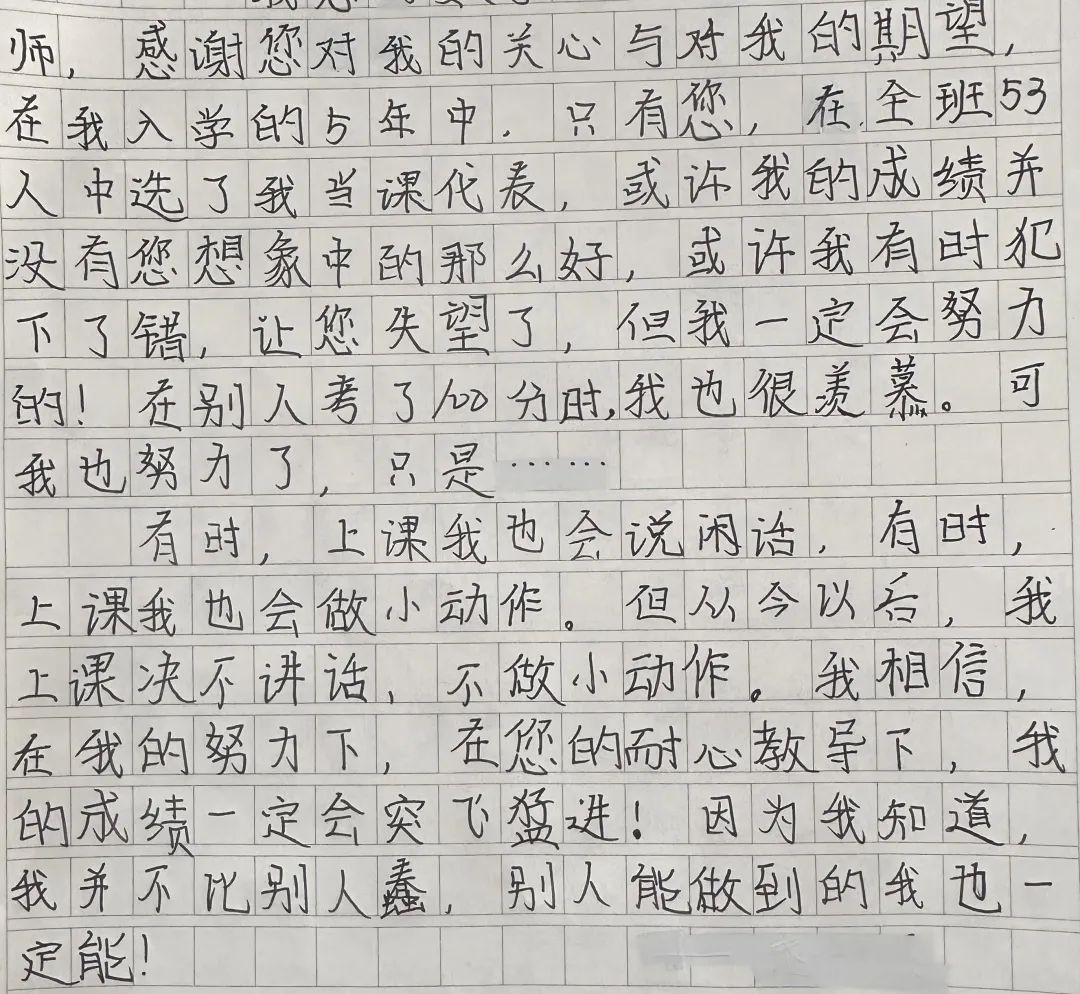 师，感谢您对我的关心与对我的期望，
在我入学的5年中．只有您，在全班53
人中选了我当课代表，或许我的成绩并
没有您想象中的那么好，或许我有时犯
下了错，让您失望了，但我一定会努力
的！在别人考了100分时，我也很羡慕。可
我也努力了，只是……
有时，上课我也会说闲话．有时，
上课我也会做小动作。但从今以后，我
上课决不讲话，不做小动作。我相信，
在我的努力下，在您的耐心教导下，我
的成绩一定会突飞猛进！因为我知道，
我并不比别人蠢，别人能做到的我也一
定能！